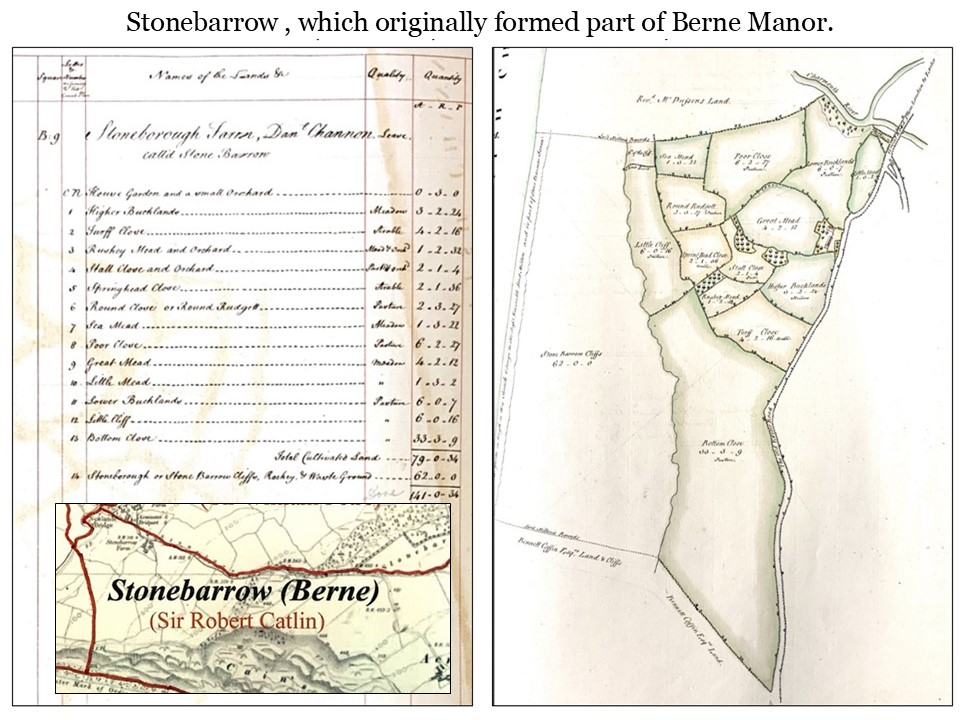 Stonebarrow , which originally formed part of Berne Manor.
Names of the Lands & Quality Quantity
A - R - P
B.9 Stoneborough Farm, Danl Channon Leave
call'd Stone Barrow
House Garden and a small Orchard 0 - 3 - 0
1 Higher Bucklands Meadow 3 - 2 - 24
2 Turff Close Arable 4 - 2 - 16
3 Rushey Mead and Orchard 1 - 2 - 32
4 Stall Close and Orchard 2 - 1 - 4
5 Springhead Close Arable 2 - 1 - 36
6 Round Close or Round Rudgett Pasture 2 - 3 - 27
7 Sea Mead Meadow 1 - 3 - 22
8 Poor Close Pasture 6 - 2 - 27
9 Great Mead Meadow 4 - 2 - 12
10 Little Mead " 1 - 3 - 2
11 Lower Bucklands Pasture 6 - 0 - 7
12 Little Cliff " 6 - 0 - 16
13 Bottom Close " 33 - 3 - 9
Total Cultivated Land 79 - 0 - 34
14 Stoneborough or Stone Barrow Cliffs, Rockey & Waste Ground 62 - 0 - 0
141 - 0 - 34
Stonebarrow (Berne)
(Sir Robert Catlin)
Charmouth River
Revd. Mr Dusons Land.
Sea Mead
Poor Close
6 - 2 - 27
Pasture
Lower Bucklands
6 - 0 - 7
Round Rudgett
Great Mead
4 - 2 - 12
Little Cliff
6 - 0 - 16
Pasture
Spring head Close
2 - 1 - 36
Stall Close
2 - 1 - 4
Higher Bucklands
Rushey Mead
Turff Close
4 - 2 - 16
Stone Barrow Cliffs
62 - 0 - 0
Bottom Close
33 - 3 - 9
Pasture
Bennett Coffin Esqrs Land & Cliffs
Bennett Coffin Esqrs Land.